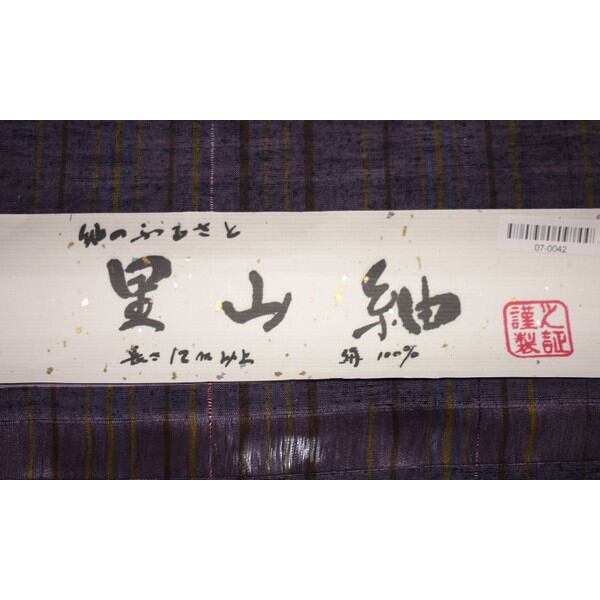 紬のふるさと
里山紬
長さ12m以上
絹100%
謹製
之証
07-0042